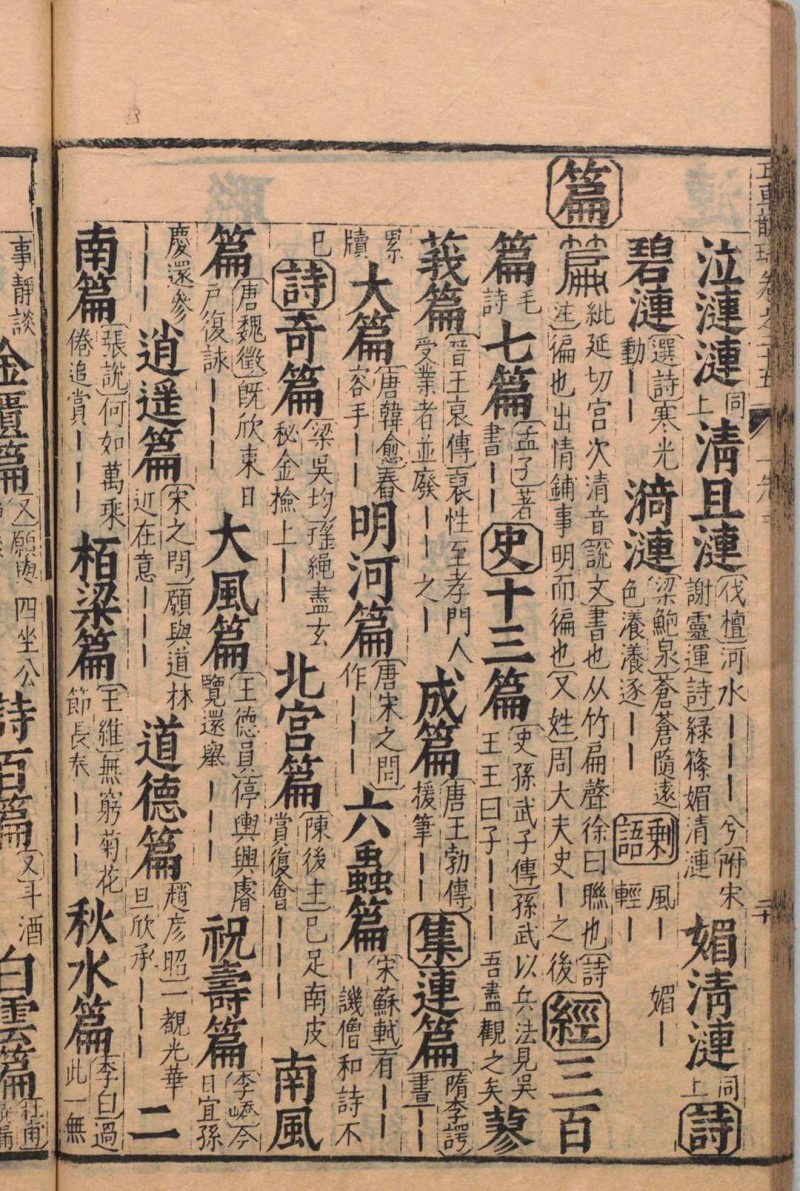 五車韻瑞卷之二十五 一先 二十
泣漣漣同上清且漣伐檀河水｜｜｜兮附宋謝靈運詩綠篠媚清漣媚清漣同上詩
碧漣選詩寒光動｜｜漪漣梁鮑泉蒼蒼隨遠色瀁瀁逐｜｜剩語風｜輕｜媚｜
篇篇紕延切宮次清音說文書也从竹扁聲徐曰聯也詩注徧也出情鋪事明而徧也又姓周大夫史｜之後經三百
篇毛詩七篇孟子著書｜｜史十三篇史孫武子傳孫武以兵法見吳王王曰子｜｜｜吾盡觀之矣蓼
莪篇晉王裒傳裒性至孝門人受業者並廢｜｜之｜成篇唐王勃傳援筆｜｜集連篇隋李諤書｜｜
累牘大篇唐韓愈舂容手｜｜明河篇唐宋之問作｜｜｜六蟲篇宋蘇軾有｜｜｜譏僧和詩不
已詩奇篇梁吳均瑤繩盡玄秘金檢上｜｜北宮篇陳後主已足南皮賞復會｜｜｜南風
篇唐魏徵既欣東日戶復詠｜｜｜大風篇王德員停輿興睿覽還舉｜｜｜祝壽篇李嶠今日宜孫
慶還參｜｜｜逍遥篇宋之問願與道林近在意｜｜｜道德篇趙彦昭一觀光華旦欣承｜｜｜二
南篇張說何如萬乘倦追賞｜｜｜栢梁篇王維無窮菊花節長奉｜｜｜秋水篇李白過此一無
事靜談金匱篇又願四坐公詩百篇又斗酒白雲篇杜甫